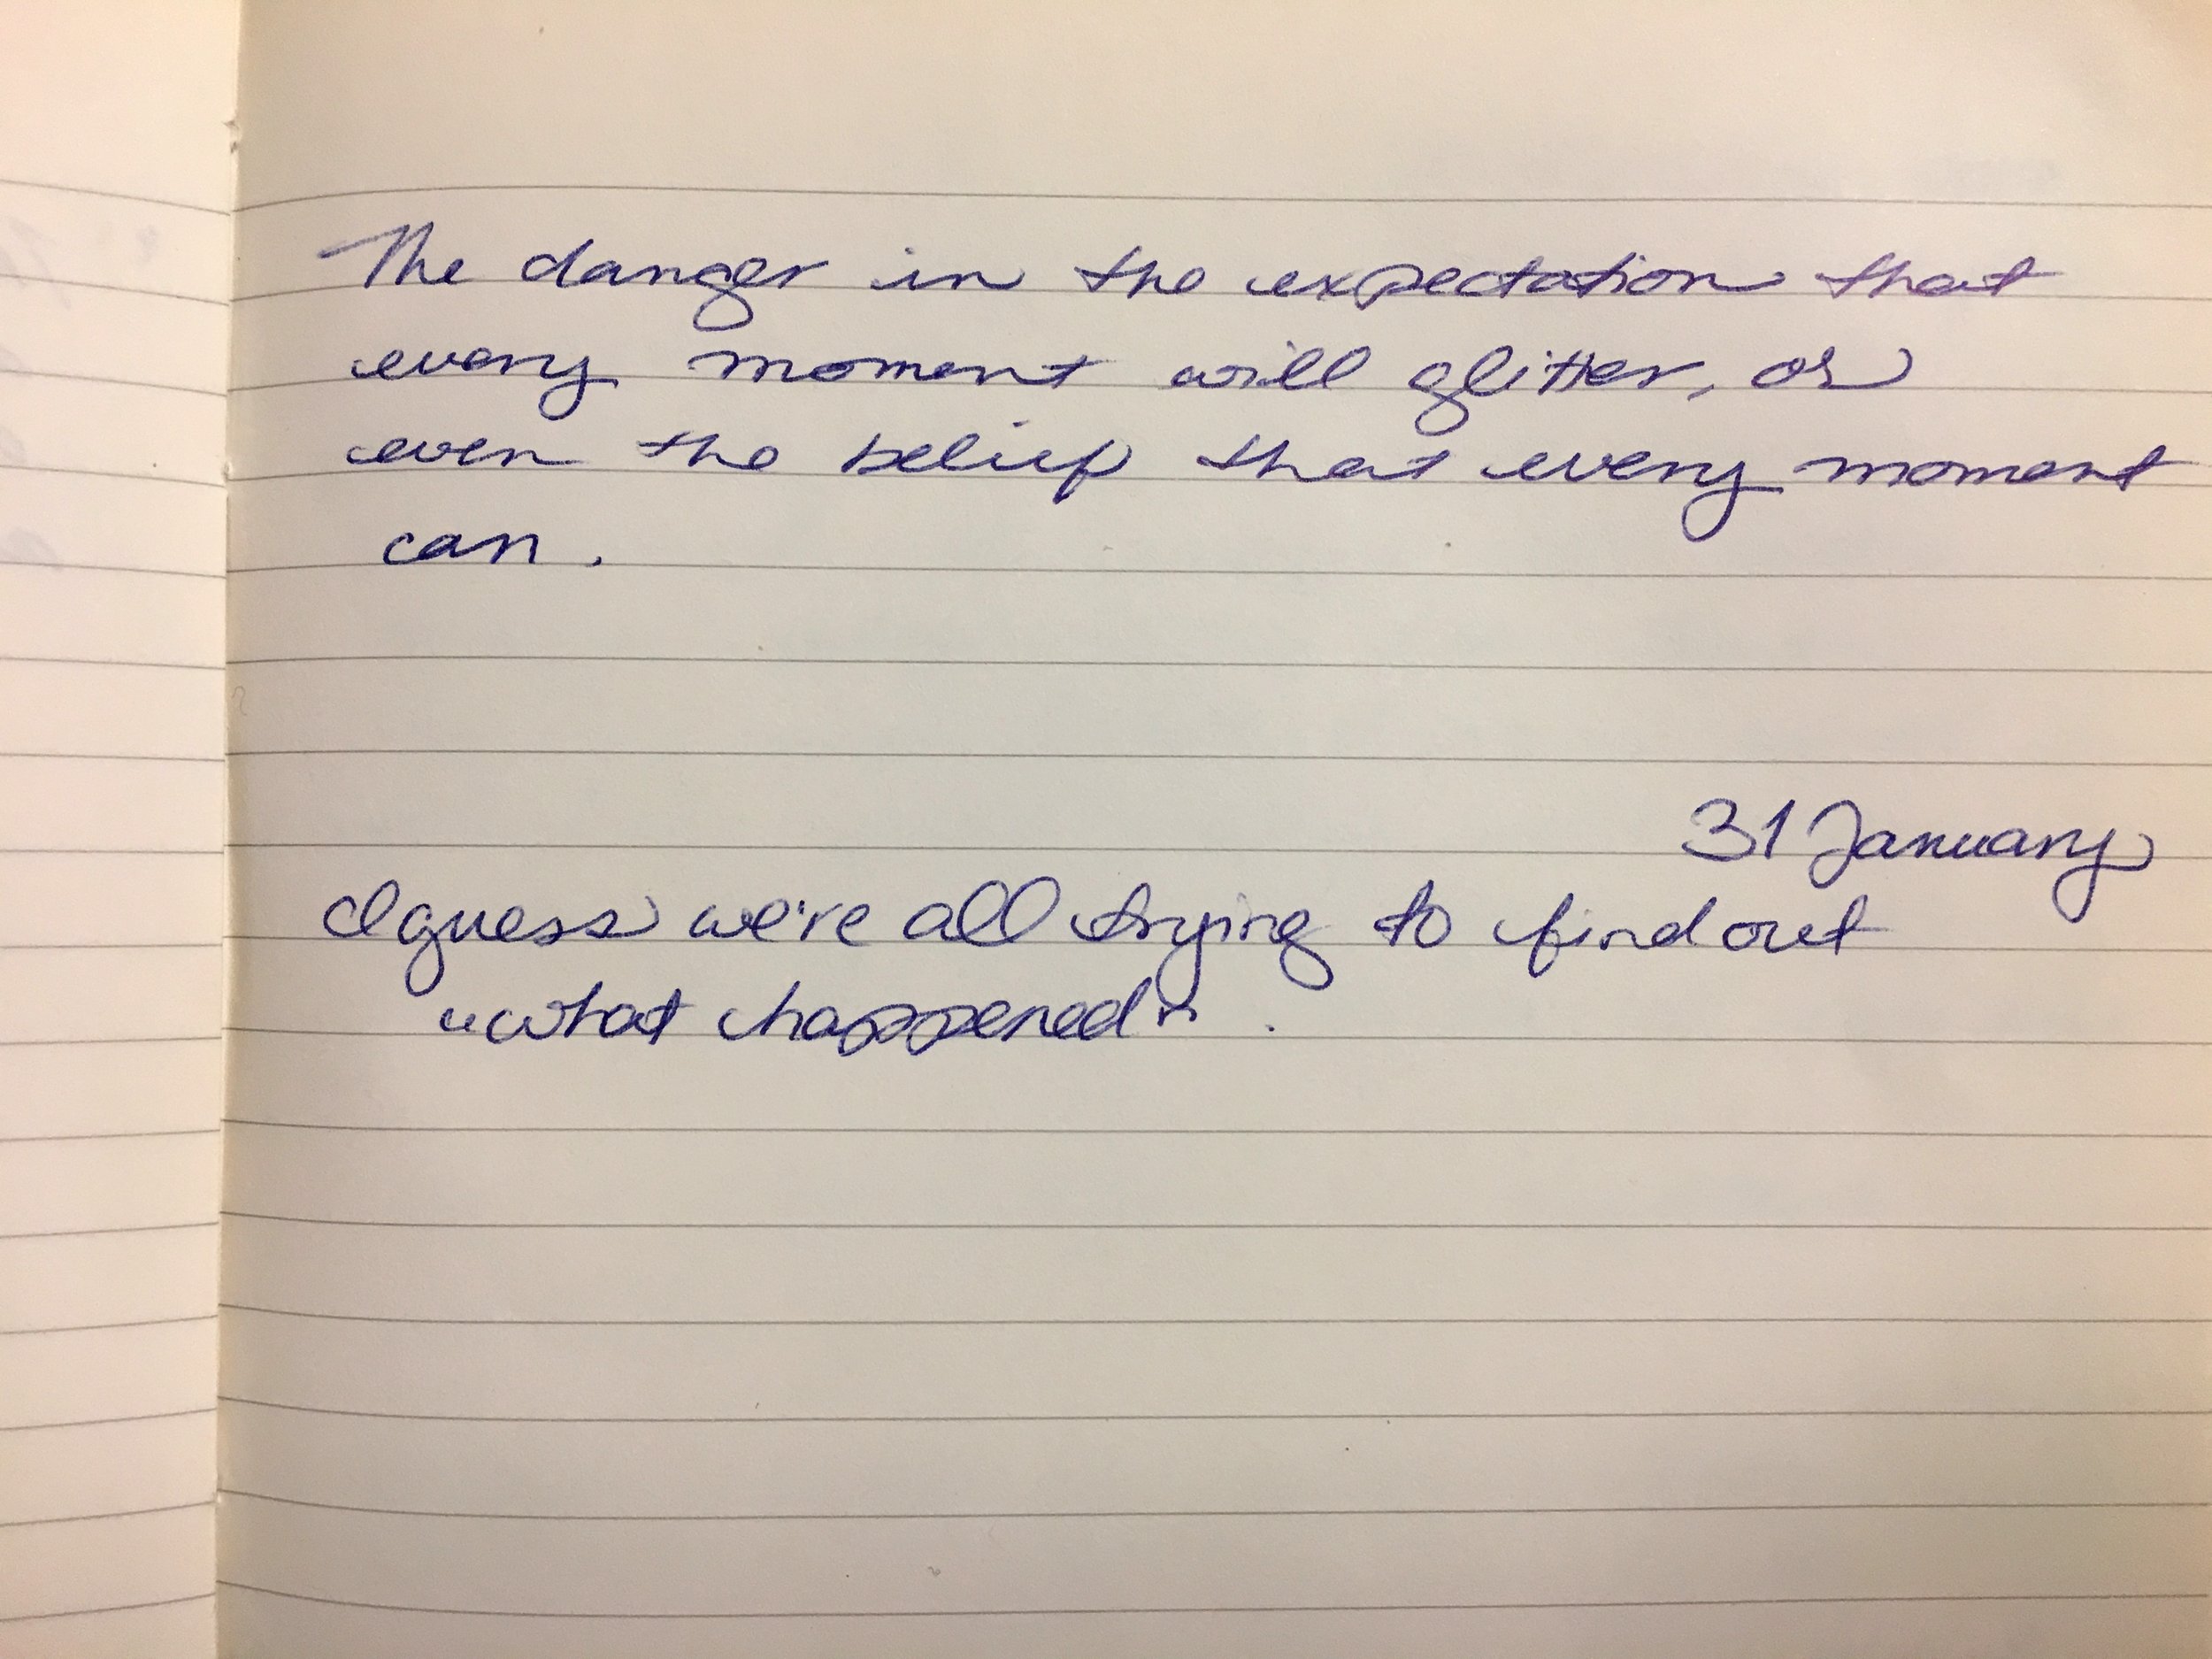 The danger in the expectation that
every moment will glitter, or
even the belief that every moment
can.
31 January
I guess we're all trying to find out
"what happened".